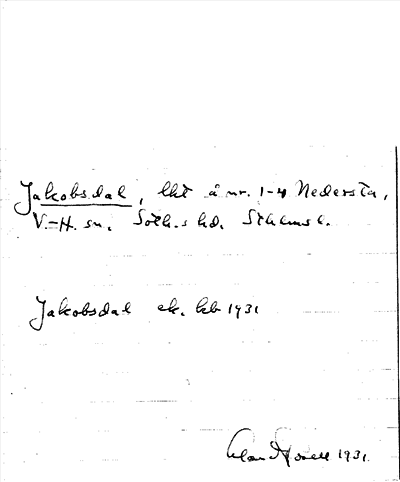 Jakobsdal, lht å nr. 1-4 Nedersta,
V.-H. sn. Soth.s hd. Sthlms l.
Jakobsdal ek. kb 1931
1931